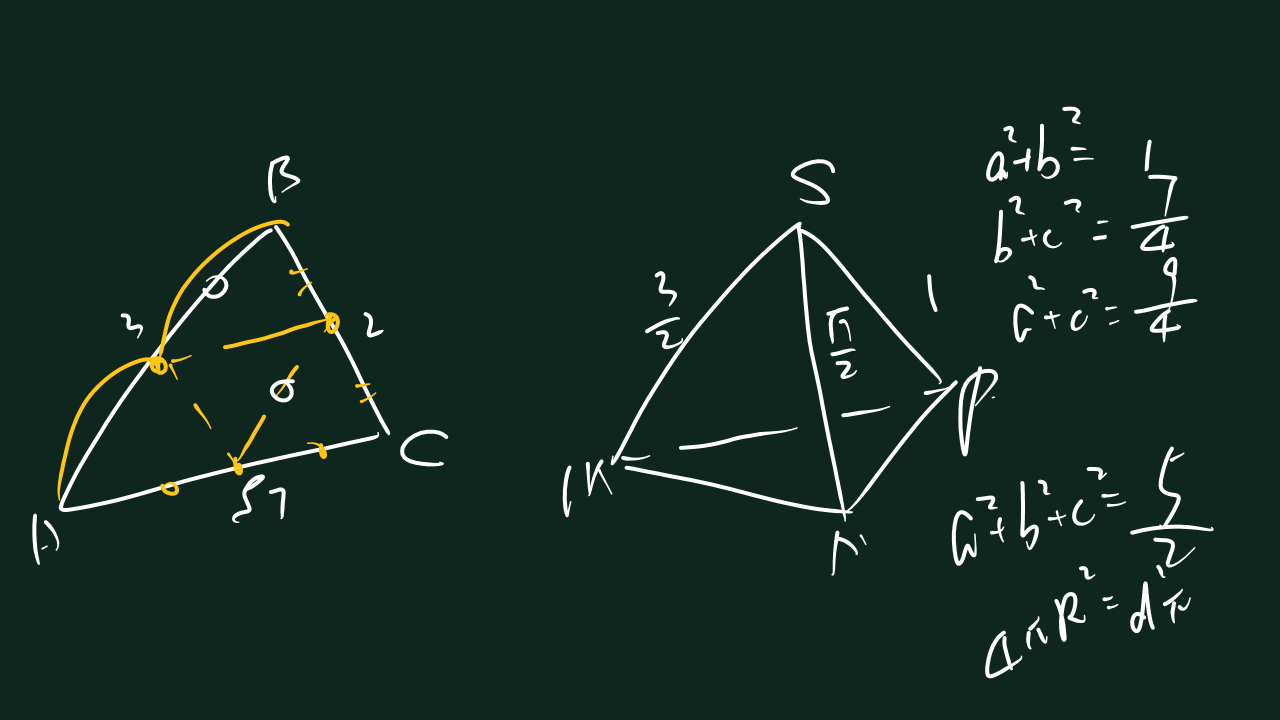 B
3
2
A
C
√7
S
3/2
√7/2
1
P
K
a²+b²=1
b²+c²=7/4
a²+c²=9/4
a²+b²+c²=5/2
4πR²=d²π